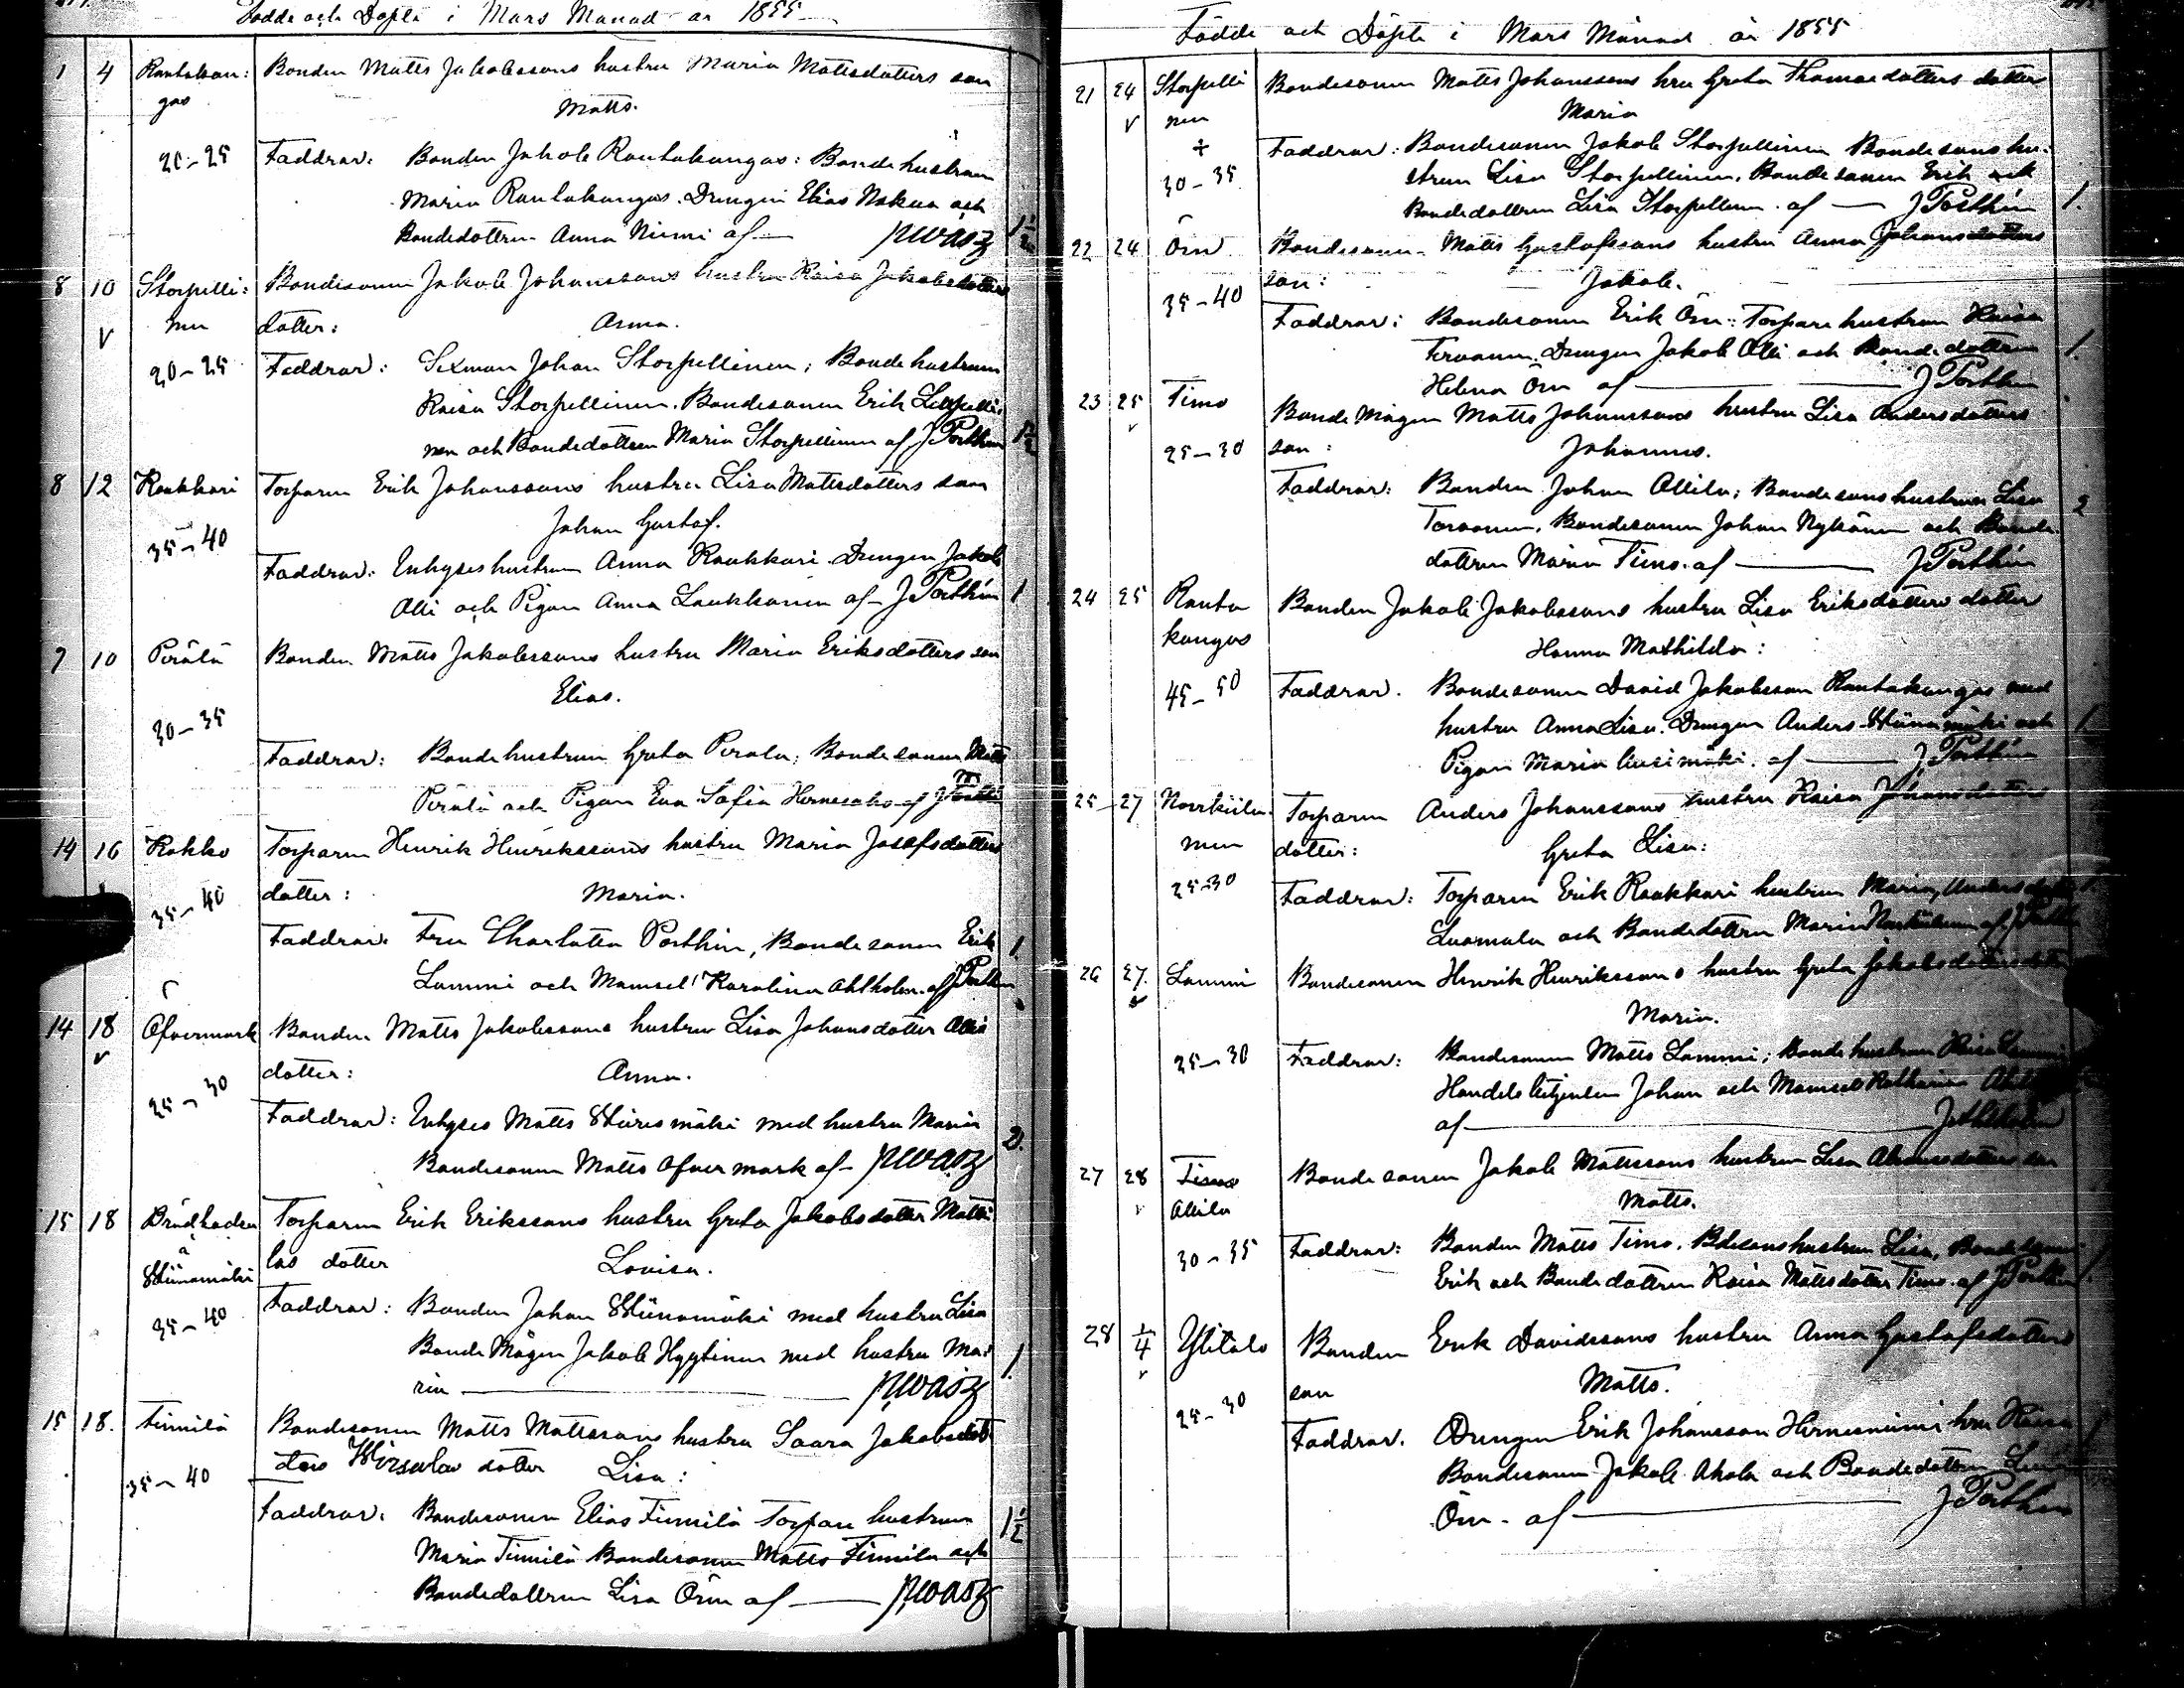 Födde och Döpte i Mars Månad år 1855
1 4 Rautakan: Bonden Matts Jakobssons hustru Maria Mattsdotters son
gas Matts.
20-25 Faddrar: Bonden Jakob Rautakangas: Bondehustrun
Maria Rautakangas. Drängen Elias Nakua och
Bondedottren Anna Niemi af — 1 1/2
8 10 Storpelli: Bondesonen Jakob Johanssons hustru Kaisa Jakobsdotters
v nen dotter: Anna.
20-25 Faddrar: Sexman Johan Storpellinen; Bondehustrun
Kaisa Storpellinen. Bondesonen Erik
nen och Bondedottren Maria Storpellinen af J Forthin 1 1/2
8 12 Raukkari Torparen Erik Johanssons hustru Lisa Mattsdotters son
Johan Gustaf.
35-40
Faddrar: Inhyseshustrun Anna Raukkari. Drängen Jakob
Olli och Pigan Anna Laukkonen af J Forthin 1
7 10 Perälä Bonden Matts Jakobssons hustru Maria Eriksdotters son
Elias.
30-35
Faddrar: Bondehustrun Greta Perälä; Bondesonen Matts
Perälä och Pigan Eva Sofia af J Forthin
14 16 Kokko Torparen Henrik Henrikssons hustru Maria Josefsdotters
35-40 dotter: Maria.
Faddrar: Fru Charlotta Forthin, Bondesonen Erik 1
Lammi och Mamsel Karolina Ahlholm af J Forthin
14 18 Öfvermark Bonden Matts Jakobssons hustru Lisa Johansdotter Ollis
v dotter: Anna.
25-30
Faddrar: Inhyses Matts Hiiresmäki med hustru Maria
Bondesonen Matts Öfvermark af — 2.
15 18 Torparen Erik Erikssons hustru Greta Jakobsdotter Matti
å las dotter Lovisa.
35-40 Faddrar: Bonden Johan med hustru Lisa
Bonde Mågen Jakob Hyytinen med hustru Ma: 1.
ria —
15 18. Finnilä Bondesonen Matts Mattssons hustru Saara Jakobsdot
35-40 ters dotter Lisa:
Faddrar: Bondesonen Elias Finnilä Torpare hustrun 1 1/2
Maria Finnilä Bondesonen Matts Finnilä och
Bondedottren Lisa Örn af —
Födde och Döpte i Mars Månad år 1855
21 24 Storpelli Bondesonen Matts Johanssons hru Greta Thomasdotters dotter
v nen Maria
+ Faddrar: Bondesonen Jakob Storpellinen Bondesons hu-
30-35 strun Lisa Storpellinen, Bondesonen Erik och
Bondedottren Lisa Storpellinen af — J Forthin 1.
22 24 Örn Bondesonen Matts Gustafssons hustru Anna Johansdotters
35-40 son: Jakob.
Faddrar: Bondesonen Erik Örn: Torpare hustrun Kaisa
Drängen Jakob Olli och Bondedottren 1.
Helena Örn af — J Forthin
23 25 Timo Bonde Mågen Matts Johanssons hustru Lisa Andersdotters
v
25-30 son: Johannes.
Faddrar: Bonden Johan Ollila; Bondesons hustrun Lisa 2
Bondesonen Johan Nykänen och Bonde
dottren Maria Timo. af — J Forthin
24 25 Rauta Bonden Jakob Jakobssons hustru Lisa Eriksdotters dotter
kangas Hanna Mathilda:
45-50 Faddrar. Bondesonen David Jakobsson Rautakangas med
hustru Anna Lisa. Drängen Anders och 1
Pigan Maria af — J Forthin
25 27 Torparen Anders Johanssons hustru Kaisa Johansdotters
nen dotter: Greta Lisa:
25-30 Faddrar: Torparen Erik Raukkari hustrun Maria,
Luomala och Bondedottren Maria af J Forthin
26 27. Lammi Bondesonen Henrik Henrikssons hustru Greta Jakobsdotters dotter
v Maria.
25-30 Faddrar: Bondesonen Matts Lammi; Bondehustrun Kaisa Lammi
Handels betjenten Johan och Mamsel Katharina
af — J Ahlholm
27 28 Timo Bondesonen Jakob Mattssons hustru Lisa son
v Ollila Matts.
30-35 Faddrar: Bonden Matts Timo. Bdesons hustrun Lisa, Bondesonen
Erik och Bondedottren Kaisa Mattsdotter Timo. af J Forthin 1.
28 1/4 Ylitalo Bonden Erik Davidssons hustru Anna Gustafsdotters
v son Matts.
25-30
Faddrar. Drängen Erik Johansson Hernesniemi hru Kaisa
Bondesonen Jakob Akola och Bondedottren
Örn. af — J Forthin